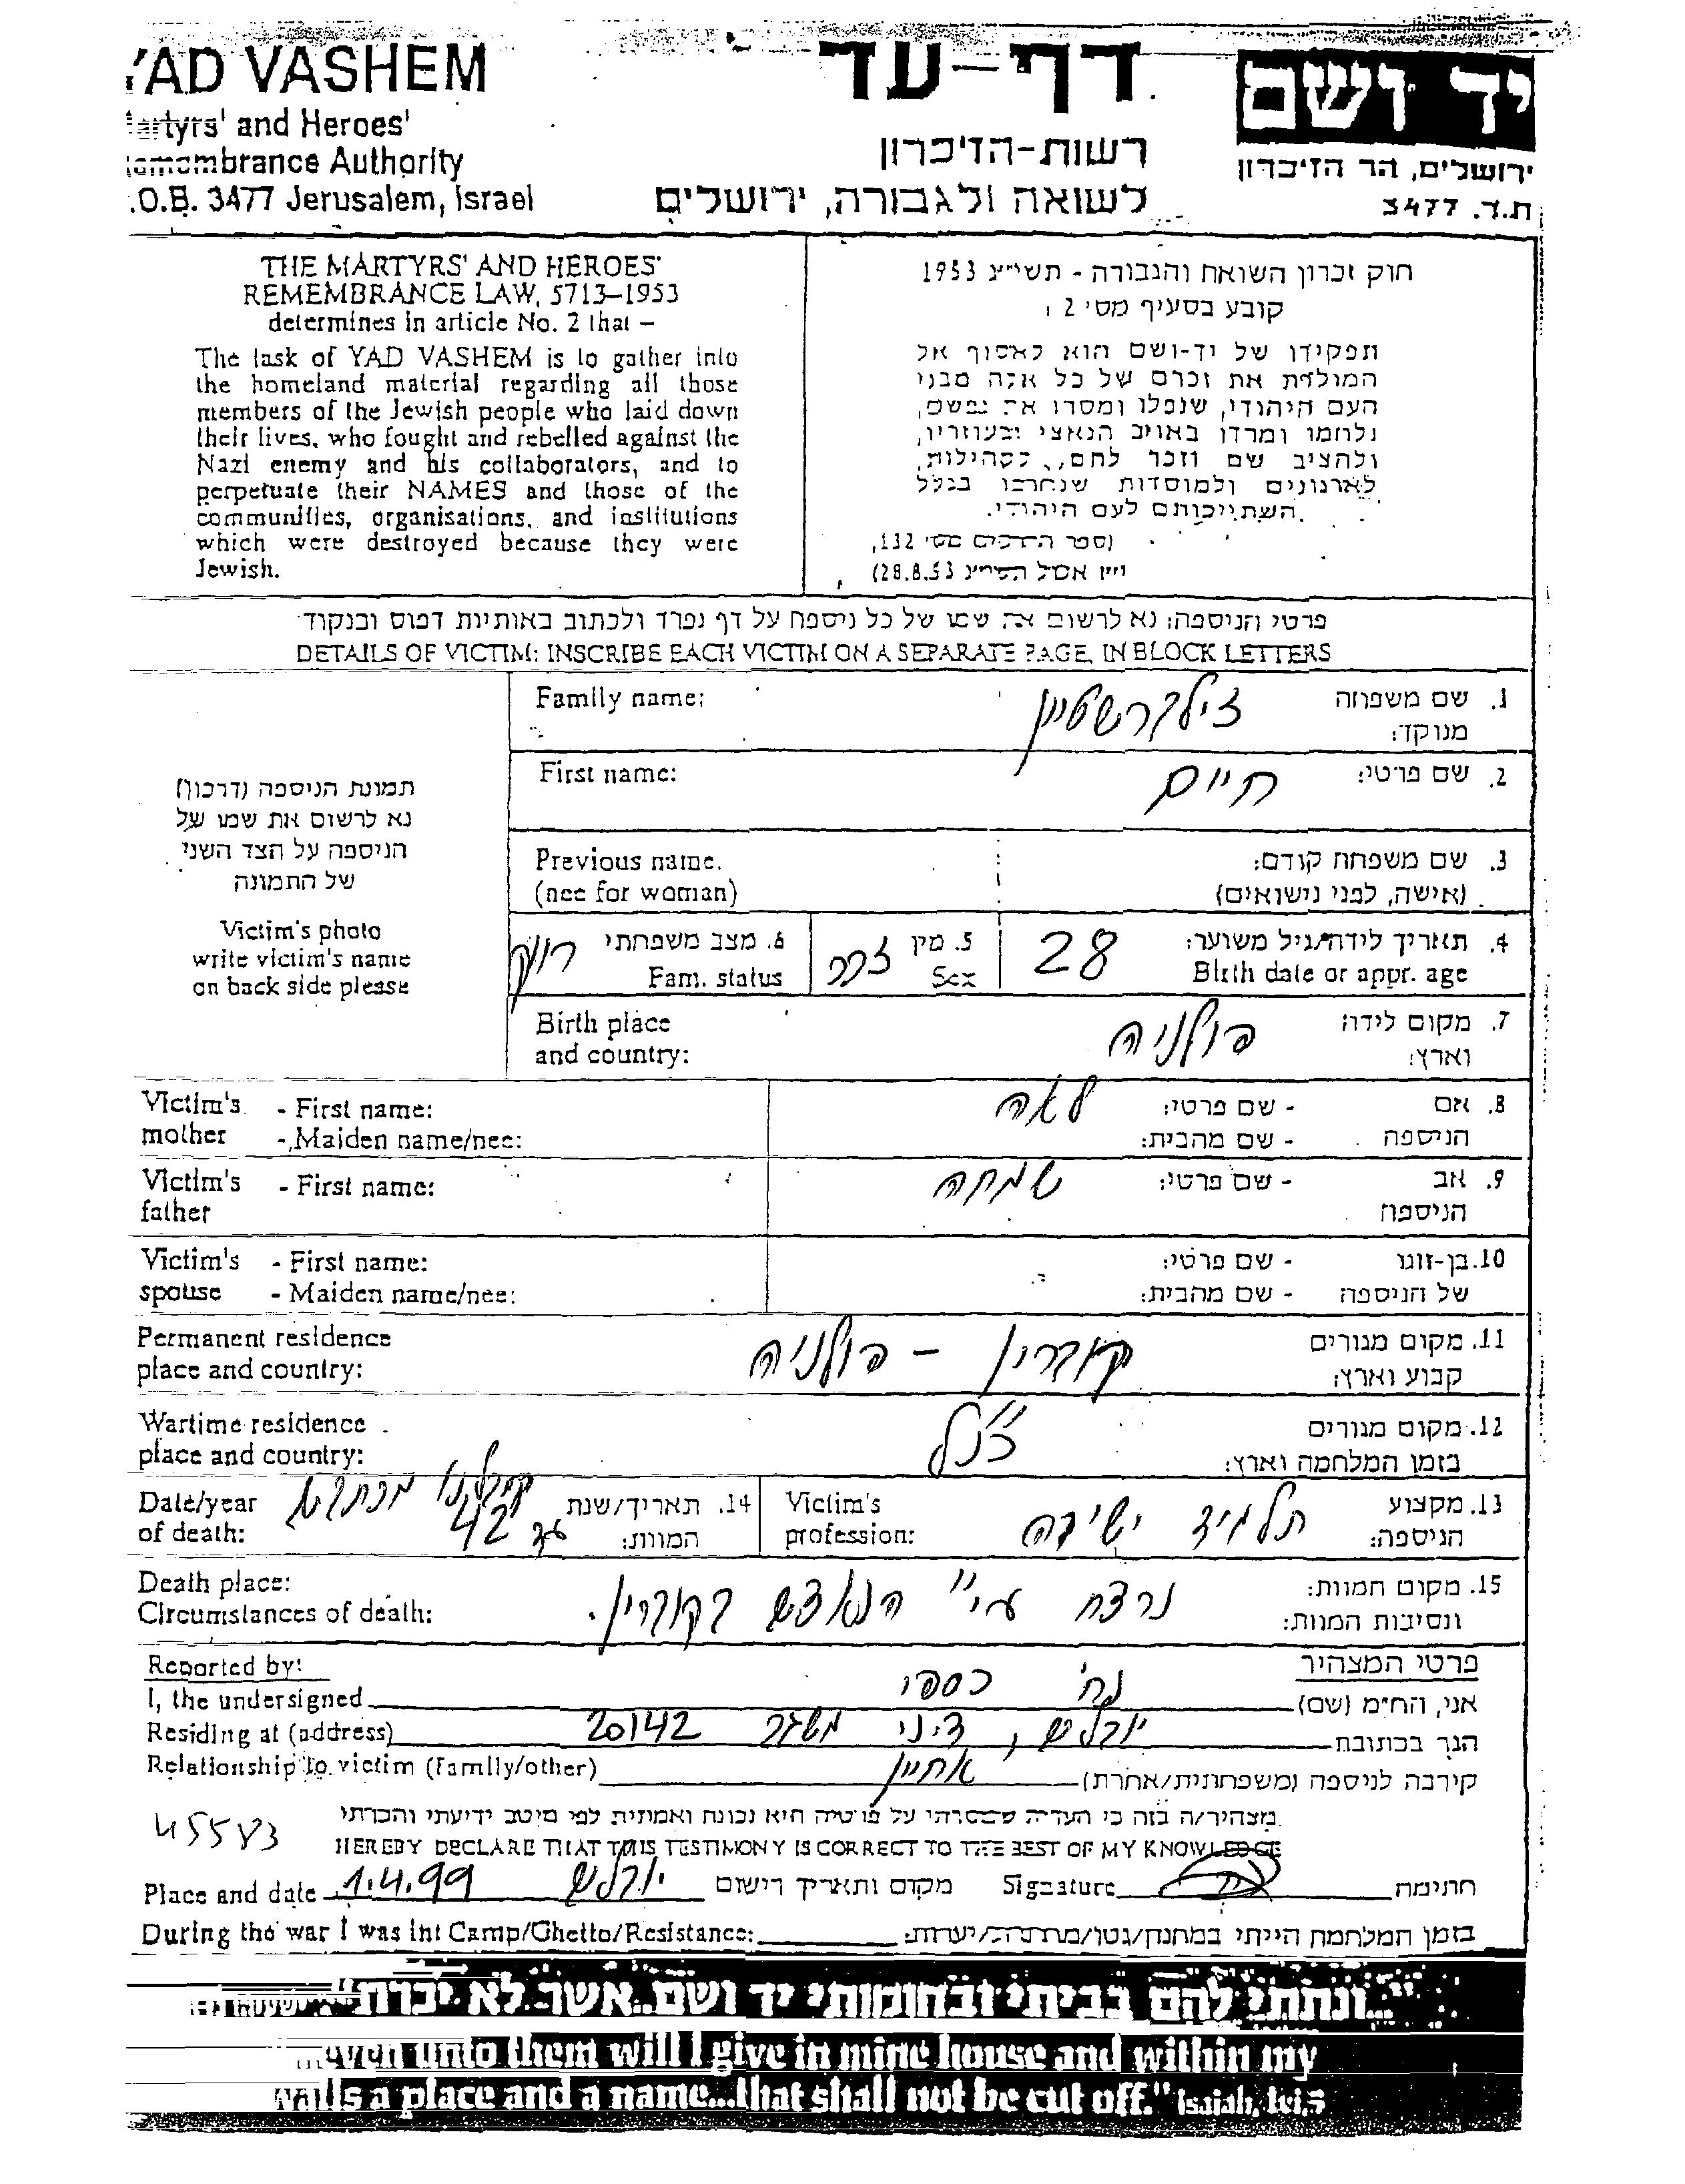 YAD VASHEM
דף-עד
יד ושם
Martyrs' and Heroes'
Remembrance Authority
.O.B. 3477 Jerusalem, Israel
רשות-הזיכרון
לשואה ולגבורה, ירושלים
ירושלים, הר הזיכרון
ת.ד. 3477
THE MARTYRS' AND HEROES'
REMEMBRANCE LAW, 5713–1953
determines in article No. 2 that –
The task of YAD VASHEM is to gather into
the homeland material regarding all those
members of the Jewish people who laid down
their lives, who fought and rebelled against the
Nazi enemy and his collaborators, and to
perpetuate their NAMES and those of the
communities, organisations, and institutions
which were destroyed because they were
Jewish.
חוק זכרון השואה והגבורה - תשי"ג 1953
קובע בסעיף מס' 2 :
תפקידו של יד-ושם הוא לאסוף אל
המולדת את זכרם של כל אלה מבני
העם היהודי, שנפלו ומסרו את נפשם,
נלחמו ומרדו באויב הנאצי ובעוזריו,
ולהציב שם וזכר להם, לקהילות,
לארגונים ולמוסדות שנחרבו בגלל
השתייכותם לעם היהודי.
(ספר החוקים מס' 132,
י"ז אלול תשי"ג 28.8.53)
פרטי הניספה: נא לרשום את שמו של כל ניספה על דף נפרד ולכתוב באותיות דפוס ובנקוד
DETAILS OF VICTIM: INSCRIBE EACH VICTIM ON A SEPARATE PAGE, IN BLOCK LETTERS
תמונת הניספה (דרכון)
נא לרשום את שמו של
הניספה על הצד השני
של התמונה
Victim's photo
write victim's name
on back side please
Family name: זילברשטיין 1. שם משפחה
מנוקד:
First name: חיים 2. שם פרטי:
Previous name. 3. שם משפחה קודם:
(nee for woman) (אישה, לפני נישואים)
4. תאריך לידה/גיל משוער: 28 5. מין זכר 6. מצב משפחתי רווק
Birth date or appr. age Sex Fam. status
Birth place פולניה 7. מקום לידה
and country: וארץ:
Victim's - First name: לאה - שם פרטי: 8. אם
mother - Maiden name/nee: - שם מהבית: הניספה
Victim's - First name: שמחה - שם פרטי: 9. אב
father הניספה
Victim's - First name: - שם פרטי: 10. בן-זוגו
spouse - Maiden name/nee: - שם מהבית: של הניספה
Permanent residence קוברין - פולניה 11. מקום מגורים
place and country: קבוע וארץ:
Wartime residence כנ"ל 12. מקום מגורים
place and country: בזמן המלחמה וארץ:
Date/year 14. תאריך/שנת
of death: 42 המוות:
Victim's תלמיד ישיבה 13. מקצוע
profession: הניספה:
Death place: נרצח ע"י הנאצים בקוברין. 15. מקום המוות:
Circumstances of death: ונסיבות המוות:
Reported by: פרטי המצהיר
I, the undersigned כספי אני, הח"מ (שם)
Residing at (address) 20142 משגב הגר בכתובת
Relationship to victim (family/other) אחיין קירבה לניספה (משפחתית/אחרת)
45583
מצהיר/ה בזה כי העדות שמסרתי על פרטיה היא נכונה ואמתית לפי מיטב ידיעתי והכרתי
HEREBY DECLARE THAT THIS TESTIMONY IS CORRECT TO THE BEST OF MY KNOWLEDGE
Place and date 1.4.99 מקום ותאריך רישום Signature חתימה
During the war I was in: Camp/Ghetto/Resistance: בזמן המלחמה הייתי במחנה/גטו/מחתרת/יערות:
"...ונתתי להם בביתי ובחומותי יד ושם...אשר לא יכרת"
"...even unto them will I give in mine house and within my
walls a place and a name...that shall not be cut off." Isaiah, lvi,5